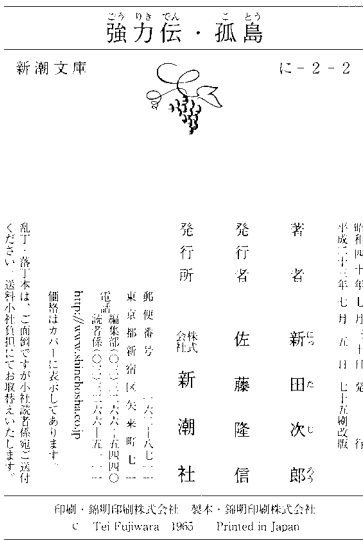 ごうりきでん ことう
強力伝・孤島
新潮文庫
に-2-2
昭和四十年七月三十日 発行
平成二十三年七月五日 七十五刷改版
著者 新田次郎
にっ た じ ろう
発行者 佐藤隆信
発行所 株式会社 新潮社
郵便番号 一六二-八七一一
東京都新宿区矢来町七一
電話 編集部(〇三)三二六六-五四四〇
読者係(〇三)三二六六-五一一一
http://www.shinchosha.co.jp
価格はカバーに表示してあります。
乱丁・落丁本は、ご面倒ですが小社読者係宛ご送付
ください。送料小社負担にてお取替えいたします。
印刷・錦明印刷株式会社 製本・錦明印刷株式会社
© Tei Fujiwara 1965 Printed in Japan